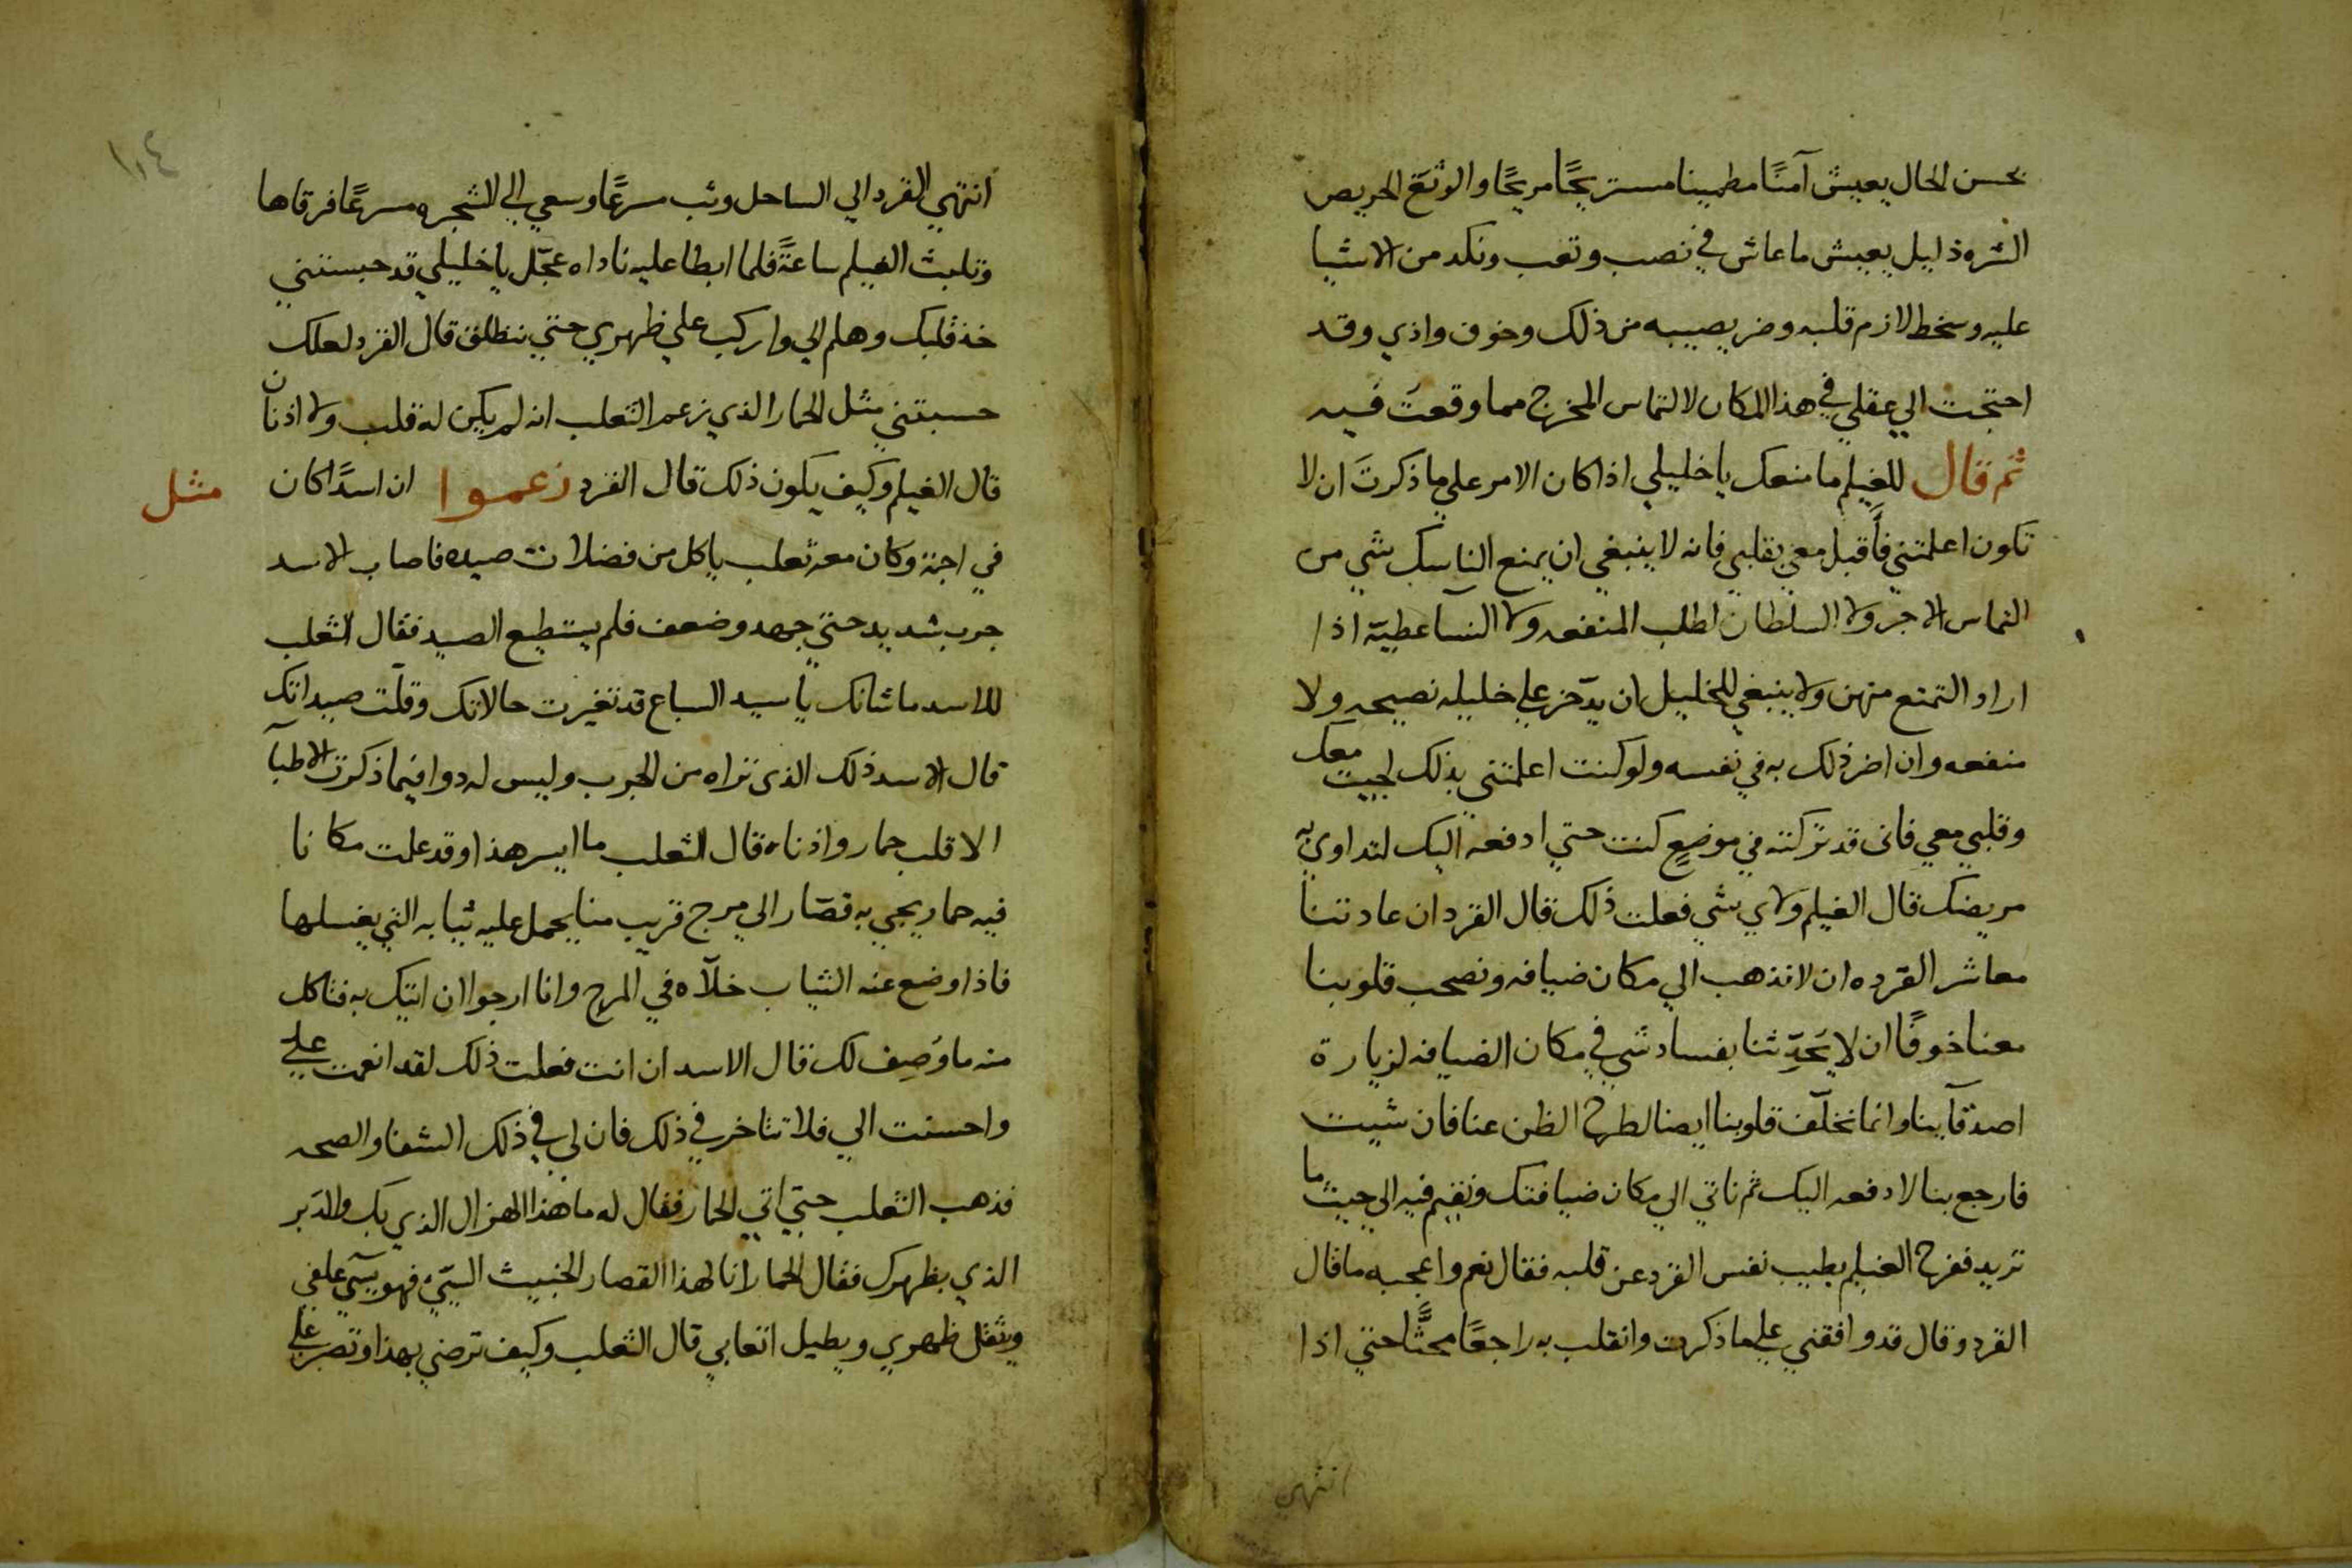 بحسن الحال يعيش آمنًا مطمينا مستريحًا مريحًا والوثغ الحريص
الشره ذليل يعيش ما عاش في نصب وتعب ونكد من الاشيا
عليه وسخط لازم قلبه وضر يصيبه من ذلك وخوف واذي وقد
احتجت الي عقلي في هذا المكان لالتماس المخرج مما وقعت فيه
ثم قال للغيلم ما منعك يا خليلي اذا كان الامر علي ما ذكرتَ ان لا
تكون اعلمتني فأُقبل معي بقلبي فانه لا ينبغي ان يمنع الناسك شي من
التماس الاجر ولا السلطان لطلب المنفعه ولا النسآ عطيّة اذا
اراد التمتع منهن ولا ينبغي للخليل ان يدّخر علي خليله نصيحه ولا
منفعه وان اضر ذلك به في نفسه ولو كنت اعلمتني بذلك لجيت معك
وقلبي معي فاني قد تركته في موضعٍ كنت حتي ادفعه اليك لتداوي به
مريضك قال الغيلم ولاي شي فعلت ذلك قال القرد ان عادتنا
معاشر القرده ان لا نذهب الي مكان ضيافه ونصحب قلوبنا
معنا خوفًا ان لا يَحَدِّثنا بفساد شي في مكان الضيافه لزيارة
اصدقآينا وانما نخلّف قلوبنا ايضا لطرح الظن عنا فان شيت
فارجع بنا لادفعه اليك ثم ناتي الي مكان ضيافتك ونقيم فيه الي حيث ما
تريد ففرح الغيلم بطيب نفس القرد عن قلبه فقال نعم واعجبه ما قال
القرد وقال قد وافقني علي ما ذكرت وانقلب به راجعًا محثًّا حتي اذا
انتهي
١٠٤
انتهي القرد الي الساحل وثب مسرعًا وسعي الي الشجره مسرعًا فرقاها
وتلبث الغيلم ساعةً فلما ابطا عليه ناداه عجّل يا خليلي قد حبستني
خذ قلبك وهلم الي واركب علي ظهري حتي ننطلق قال القرد لعلك
حسبتني مثل الحمار الذي زعم الثعلب انه لم يكن له قلب ولا اذنان
قال الغيلم وكيف يكون ذلك قال القرد زعموا ان اسدًا كان
مثل
في اجمة وكان معه ثعلب ياكل من فضلات صيده فاصاب الاسد
جرب شديد حتي جهد وضعف فلم يستطيع الصيد فقال الثعلب
للاسد ما شانك يا سيد السباع قد تغيرت حالاتك وقلّت صيداتك
قال الاسد ذلك الذي تراه من الجرب وليس له دوا فيما ذكرت الاطبآ
الا قلب حمار واذناه قال الثعلب ما ايسر هذا وقد علمت مكانا
فيه حمار يجي به قصّار الي مرج قريب منا يحمل عليه ثيابه التي يغسلها
فاذا وضع عنه الثياب خلّاه في المرج وانا ارجوا ان اتيك به فتاكل
منه ما وُصِف لك قال الاسد ان انت فعلت ذلك لقد انعمت عليّ
واحسنت الي فلا تتاخر في ذلك فان لي في ذلك الشفا والصحه
فذهب الثعلب حتي اتي الحمار فقال له ما هذا الهزال الذي بك والدَبر
الذي بظهرك فقال الحمار انا لهذا القصار الخبيث السيّئ فهو يسي علفي
ويثقل ظهري ويطيل اتعابي قال الثعلب وكيف ترضي بهذا وتصبر علي